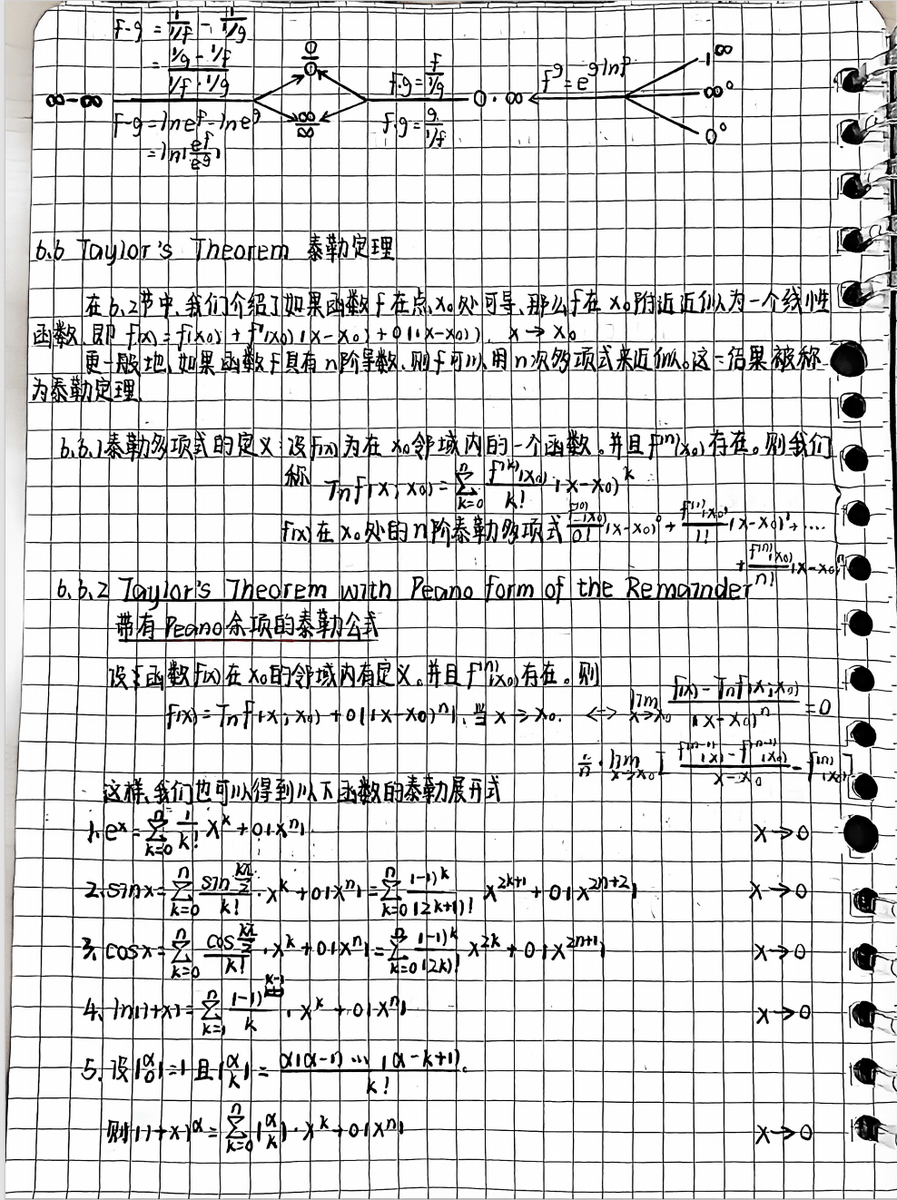 f-g = \frac{1}{1/f} - \frac{1}{1/g}
= \frac{1/g - 1/f}{1/f · 1/g}
∞-∞
f-g = ln e^f - ln e^g
= ln(\frac{e^f}{e^g})
\frac{0}{0}
\frac{∞}{∞}
f·g = \frac{f}{1/g}
f·g = \frac{g}{1/f}
0·∞
f^g = e^{g ln f}
1^∞
∞^0
0^0
6.6 Taylor's Theorem 泰勒定理
在6.2节中,我们介绍了如果函数f在点x₀处可导,那么f在x₀附近近似为一个线性
函数,即 f(x) = f(x₀) + f'(x₀)(x-x₀) + o(x-x₀), x→x₀
更一般地,如果函数f具有n阶导数,则f可以用n次多项式来近似。这一结果被称
为泰勒定理.
6.6.1 泰勒多项式的定义:设f(x)为在x₀邻域内的一个函数。并且f^{(n)}(x₀)存在。则我们
称 T_n f(x; x₀) = \sum_{k=0}^{n} \frac{f^{(k)}(x₀)}{k!} (x-x₀)^k
f(x)在x₀处的n阶泰勒多项式 \frac{f^{(0)}(x₀)}{0!}(x-x₀)^0 + \frac{f^{(1)}(x₀)}{1!}(x-x₀)^1 + ....
+ \frac{f^{(n)}(x₀)}{n!}(x-x₀)^n
6.6.2 Taylor's Theorem with Peano form of the Remainder
带有Peano余项的泰勒公式
设函数f(x)在x₀的邻域内有定义。并且f^{(n)}(x₀)存在。则
f(x) = T_n f(x; x₀) + o((x-x₀)^n), 当x→x₀. <=> \lim_{x→x₀} \frac{f(x) - T_n f(x; x₀)}{(x-x₀)^n} = 0
\lim_{x→x₀} [\frac{f^{(n-1)}(x) - f^{(n-1)}(x₀)}{x-x₀} - f^{(n)}(x₀)]
这样,我们也可以得到以下函数的泰勒展开式
1. e^x = \sum_{k=0}^{n} \frac{1}{k!} x^k + o(x^n) x→0
2. sin x = \sum_{k=0}^{n} \frac{sin\frac{kπ}{2}}{k!} · x^k + o(x^n) = \sum_{k=0}^{n} \frac{(-1)^k}{(2k+1)!} x^{2k+1} + o(x^{2n+2}) x→0
3. cos x = \sum_{k=0}^{n} \frac{cos\frac{kπ}{2}}{k!} · x^k + o(x^n) = \sum_{k=0}^{n} \frac{(-1)^k}{(2k)!} x^{2k} + o(x^{2n+1}) x→0
4. ln(1+x) = \sum_{k=1}^{n} \frac{(-1)^{k-1}}{k} · x^k + o(x^n) x→0
5. 设(\binom{α}{0}) = 1 且 (\binom{α}{k}) = \frac{α(α-1)...(α-k+1)}{k!}.
则(1+x)^α = \sum_{k=0}^{n} (\binom{α}{k}) · x^k + o(x^n) x→0